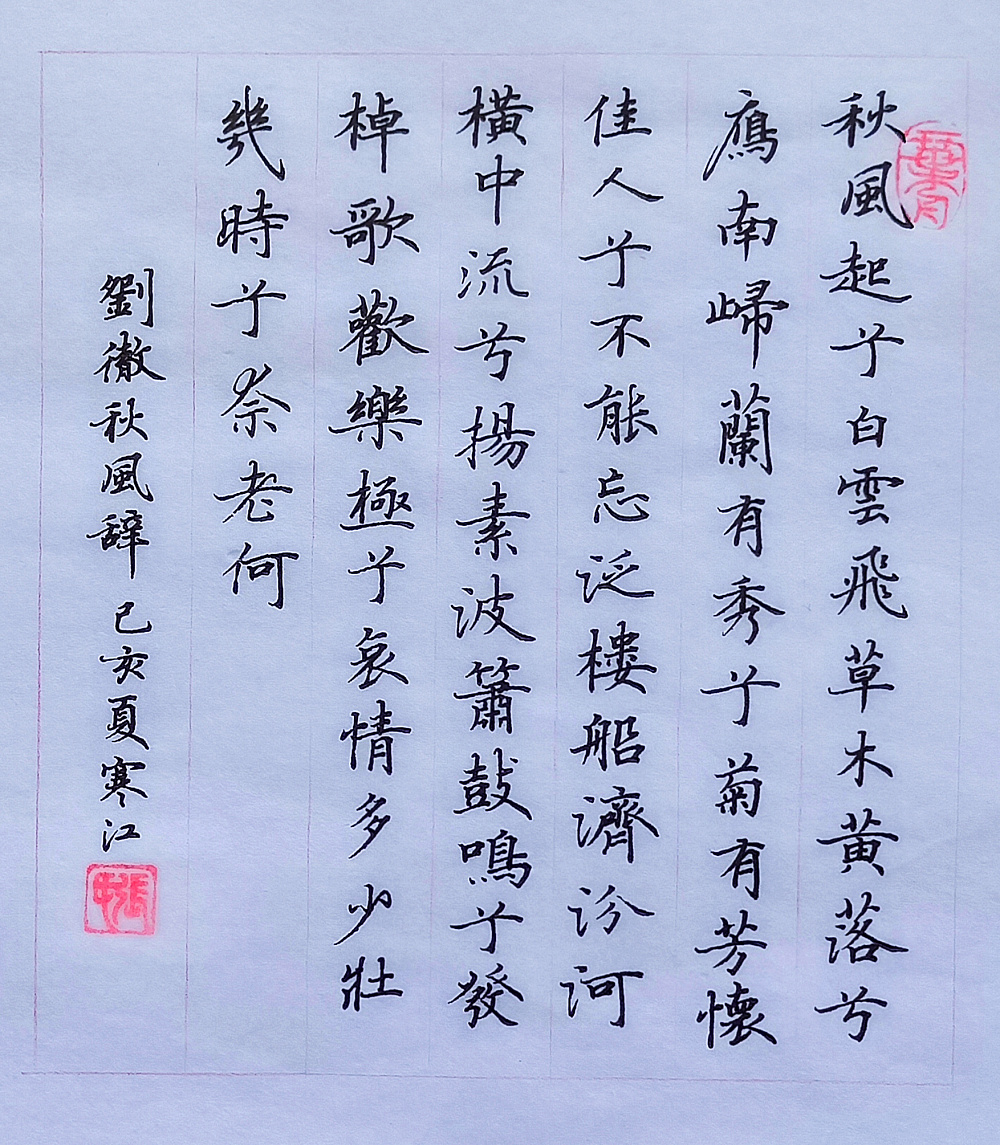 秋風起兮白雲飛草木黃落兮
鴈南歸蘭有秀兮菊有芳懷
佳人兮不能忘泛樓船濟汾河
橫中流兮揚素波簫鼓鳴兮發
棹歌歡樂極兮哀情多少壯
幾時兮奈老何
劉徹秋風辭 己亥夏寒江